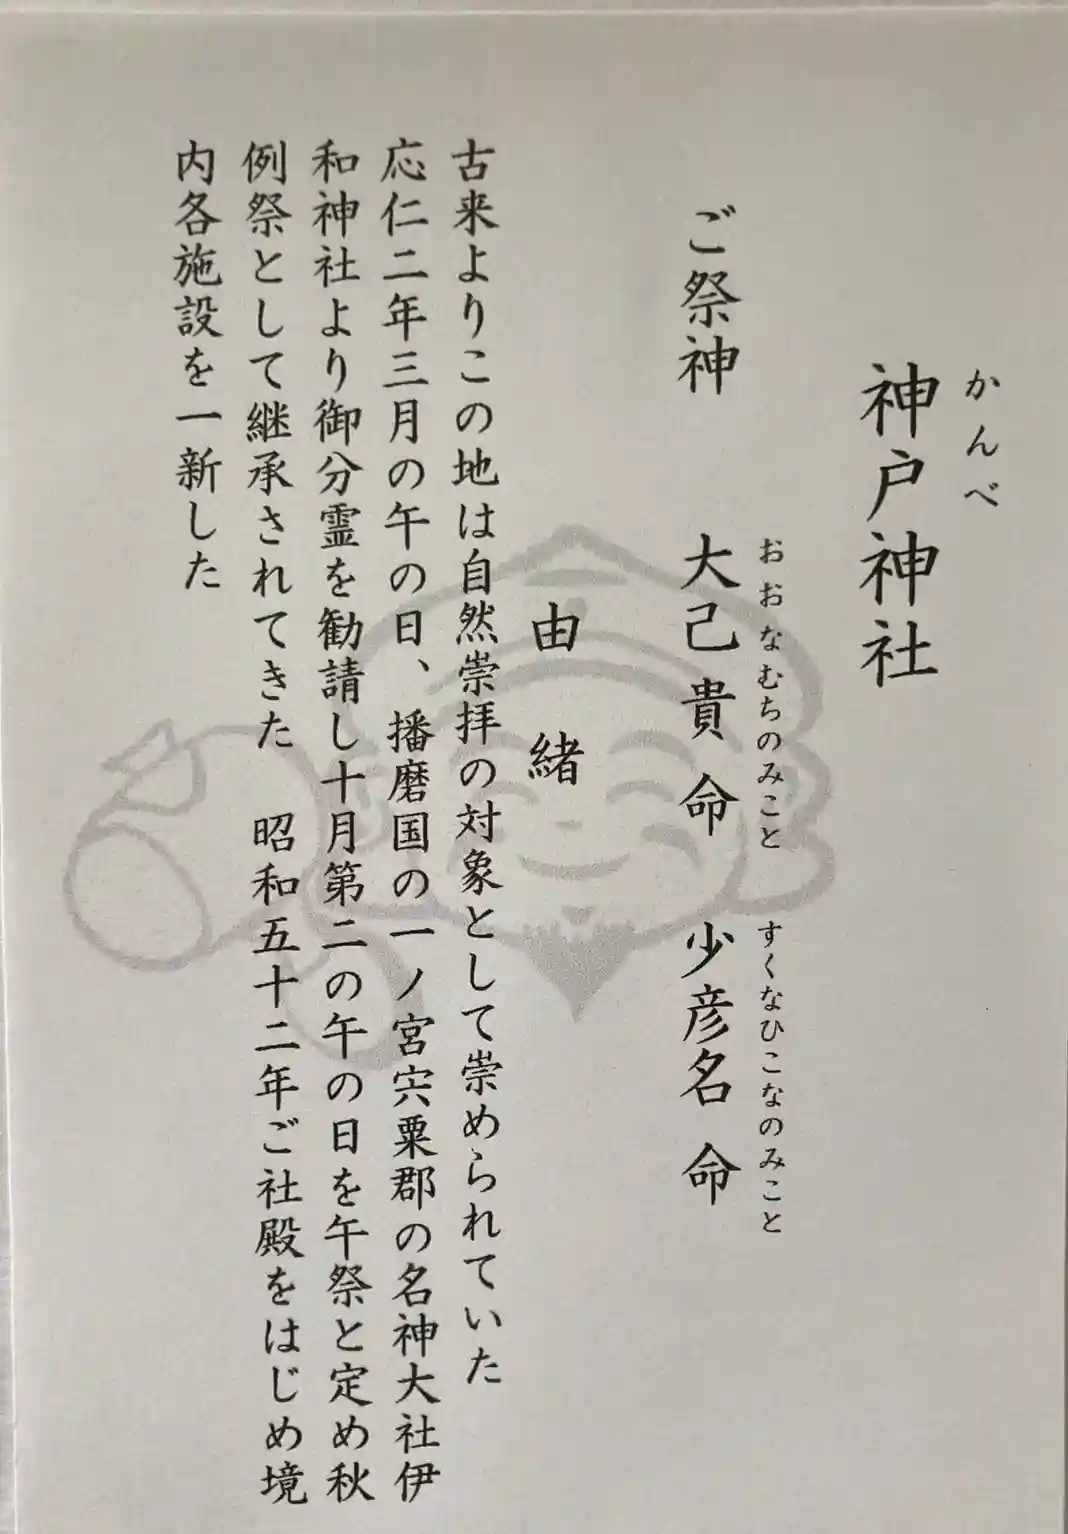 かんべ
神戸神社
おおなむちのみこと すくなひこなのみこと
ご祭神 大己貴命 少彦名命
由緒
古来よりこの地は自然崇拝の対象として崇められていた
応仁二年三月の午の日、播磨国の一ノ宮宍粟郡の名神大社伊
和神社より御分霊を勧請し十月第二の午の日を午祭と定め秋
例祭として継承されてきた 昭和五十二年ご社殿をはじめ境
内各施設を一新した